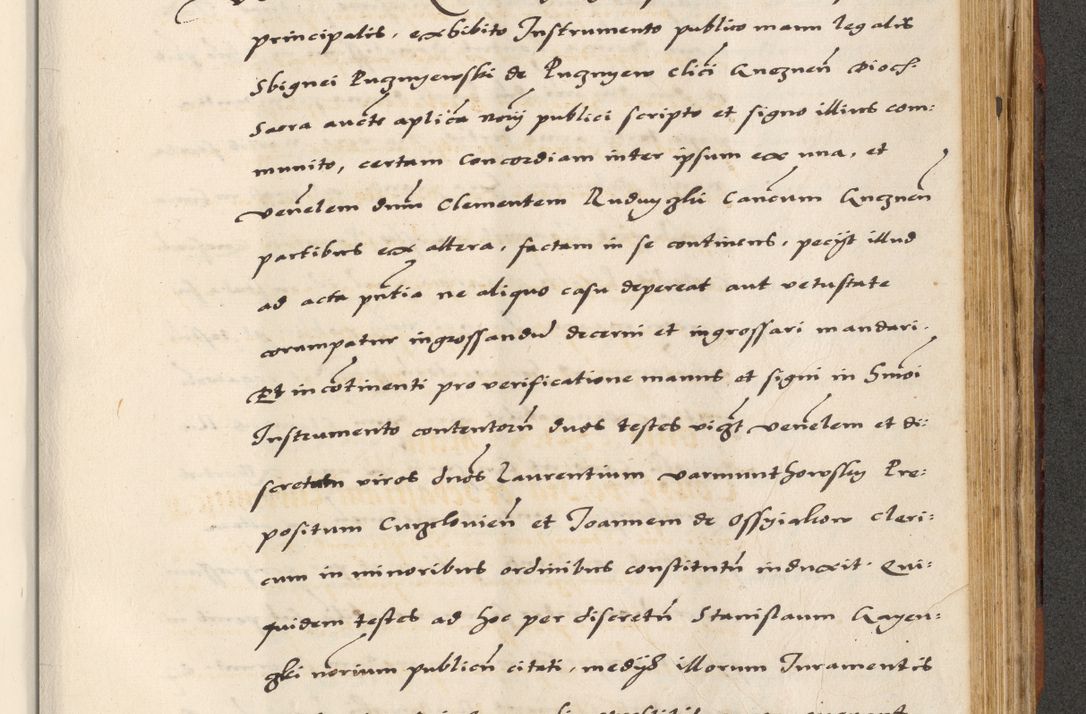 principalis, exhibito Instrumento publico manu legalis
Sbignei Pucznyewski de Pucznyew clici Gneznen̄ Dioc.
Sacra aucte aplica norij publici scripto et signo illius com:
munito, certam Concordiam inter ipsum ex una, et
venelem dnm Clementem Rudnyczki Canonum Gneznen̄
partibus ex altera, factam in se continens, pecijt illud
ad acta pntia ne aliquo casu depereat aut vetustate
corrumpatur ingrossandu decerni et ingrossari mandari.
Et incontinenti pro verificatione manus et signi in hmoi
Instrumento contentorū duos testes vigt venelem et di:
scretum viros dnos Laurentium varmunthowsky Pre:
positum Curzelovien̄ et Joannem de Ossyiakow cleri:
cum in minoribus ordinibus constitutū induxit. Qui:
quidem testes ad hoc per discretū Stanislaum
norium publicū citati, medijs illorum Juramentis